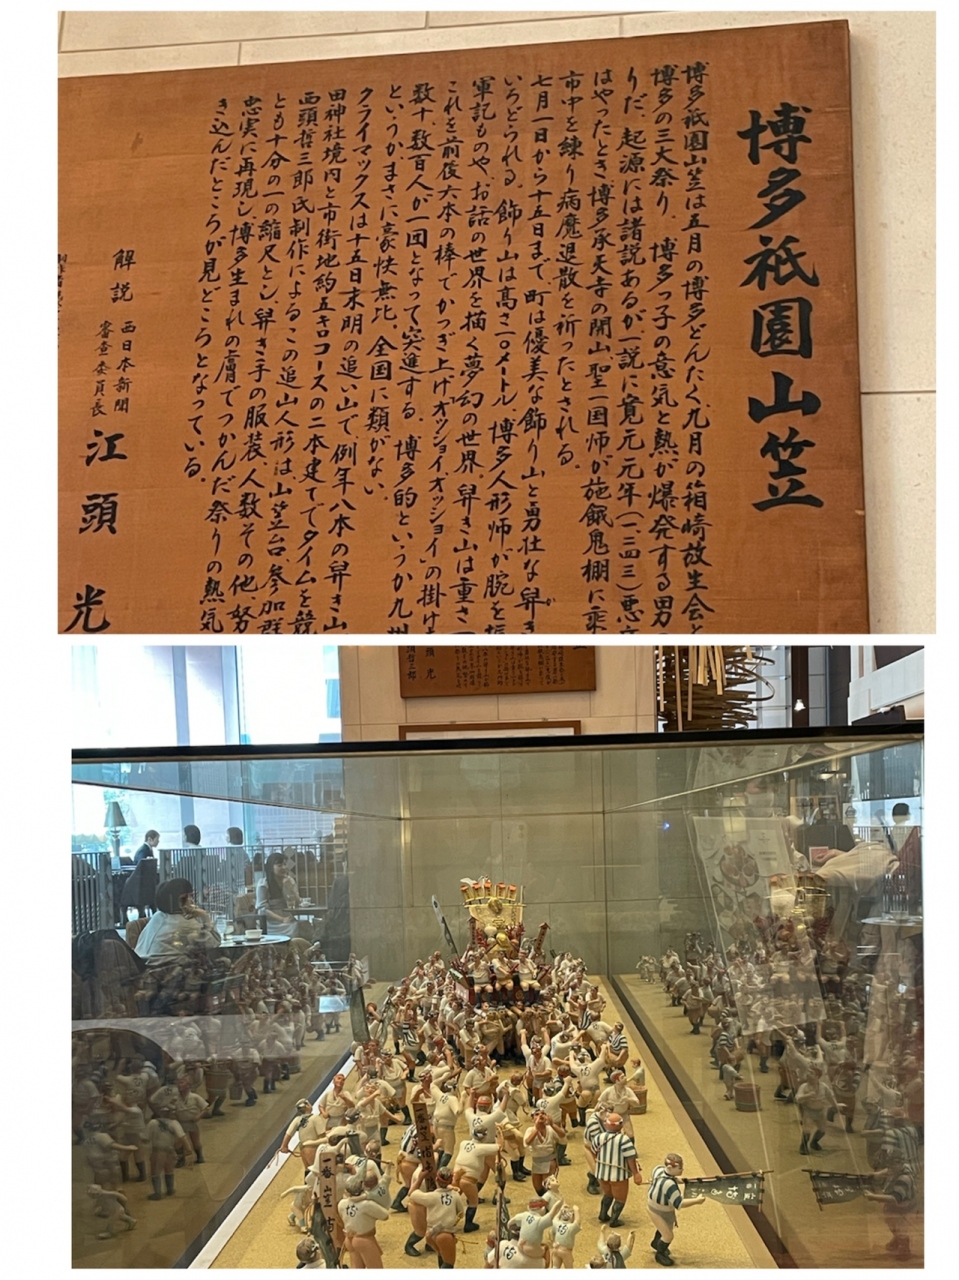 博多祇園山笠
博多祇園山笠は五月の博多どんたく九月の箱崎放生会と
博多の三大祭り、博多っ子の意気と熱が爆発する男の
りだ。起源には諸説あるが一説に寛元元年(一二四三)悪疫
はやったとき博多承天寺の開山、聖一国師が施餓鬼棚に乗
市中を練り病魔退散を祈ったとされる。
七月一日から十五日まで、町は優美な飾り山と勇壮な舁き
いろどられる。飾り山は高さ一〇メートル、博多人形師が腕を振
軍記ものや、お話の世界を描く夢幻の世界。舁き山は重さ一
これを前後六本の棒でかつぎ上げオッショイ、オッショイの掛け
数十、数百人が一団となって突進する。博多的というか九州
というか、まさに豪快無比。全国に類がない。
クライマックスは十五日未明の追い山で、例年八本の舁き山
田神社境内と市街地約五キロコースの二本建てでタイムを競
西頭哲三郎氏制作によるこの追山人形は、山笠台、参加群
とも十分の一の縮尺とし、舁き手の服装、人数その他努
忠実に再現し、博多生まれの膚でつかんだ祭りの熱気
き込んだところが見どころとなっている。
解説 西日本新聞
審査委員長 江頭光
一番山笠